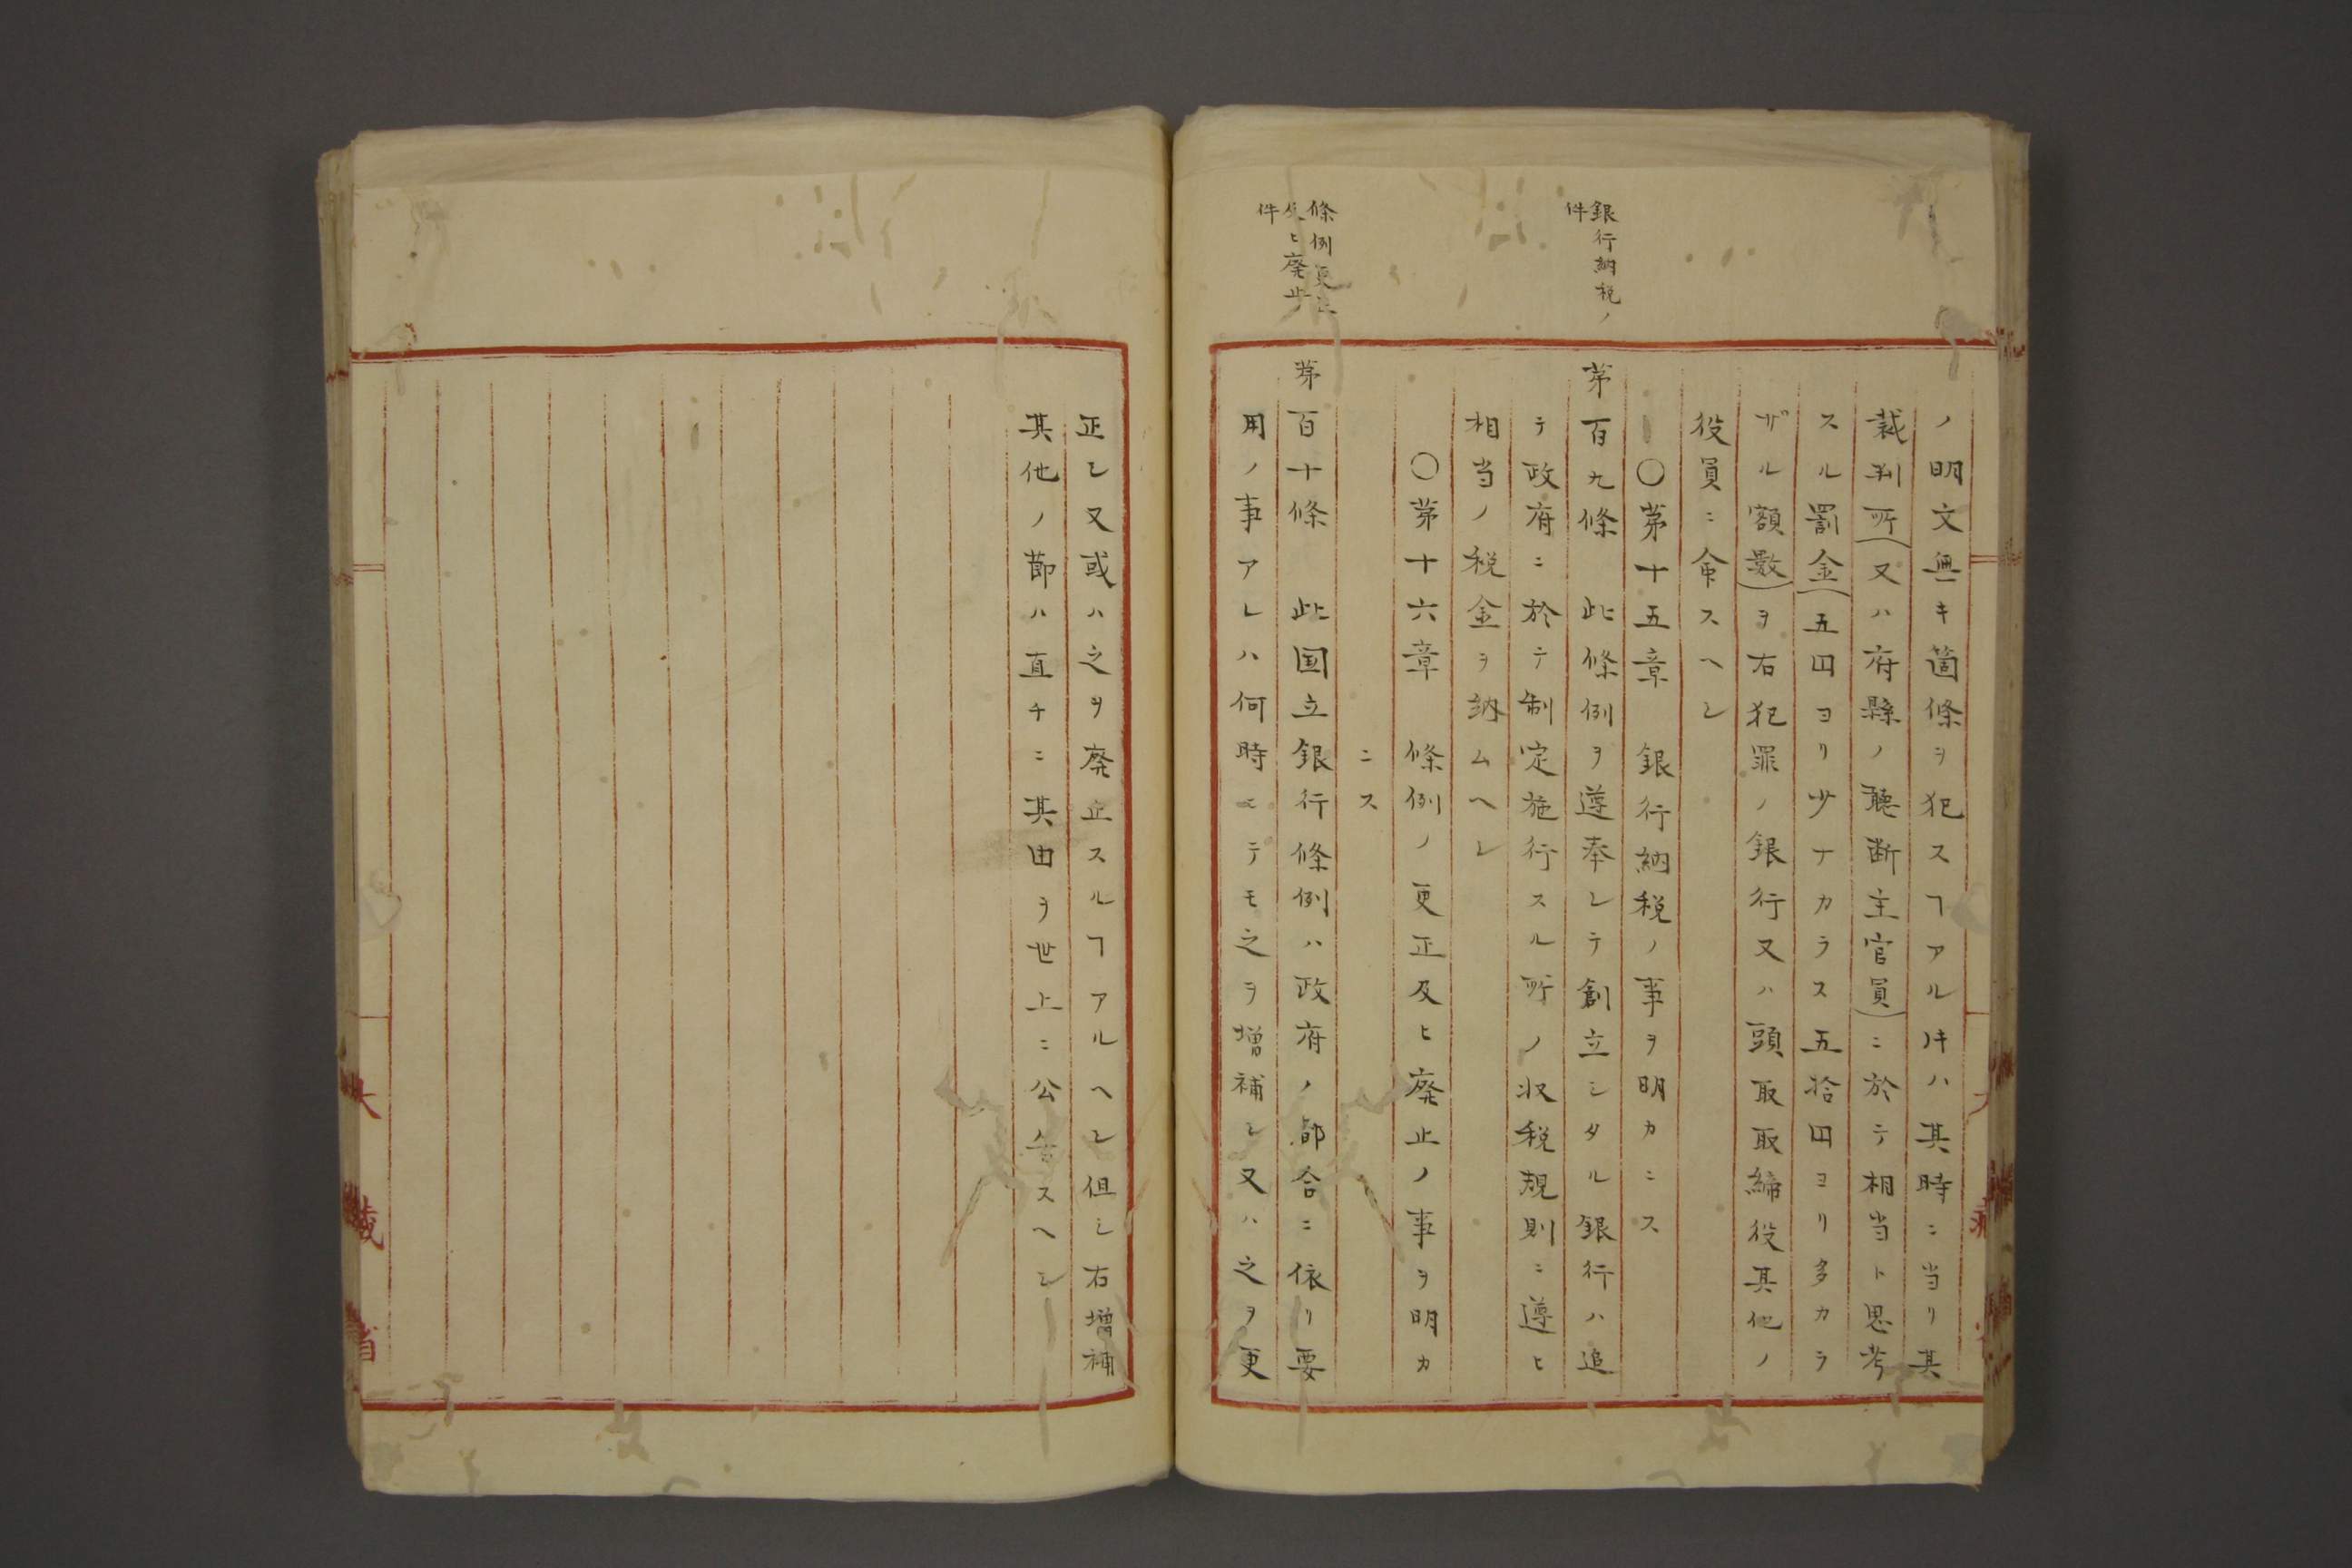 ノ明文無キ箇條ヲ犯スヿアルㇳキハ其時ニ当リ其
裁判所(又ハ府縣ノ聽断主官員)ニ於テ相当ト思考
スル罰金(五円ヨリ少ナカラス五拾円ヨリ多カラ
ザル額數)ヲ右犯罪ノ銀行又ハ頭取取締役其他ノ
役員ニ命スヘシ
〇第十五章 銀行納税ノ事ヲ明カニス
銀行納税ノ
件
第百九條 此條例ヲ遵奉シテ創立シタル銀行ハ追
テ政府ニ於テ制定施行スル所ノ収税規則ニ遵ヒ
相当ノ税金ヲ納ムヘシ
〇第十六章 條例ノ更正及ヒ廃止ノ事ヲ明カ
ニス
條例更正
及ヒ廃止
件
第百十條 此国立銀行條例ハ政府ノ都合ニ依リ要
用ノ事アレハ何時ニテモ之ヲ増補シ又ハ之ヲ更
正シ又或ハ之ヲ廃止スルヿアルヘシ但シ右増補
其他ノ節ハ直チニ其由ヲ世上ニ公告スヘシ
大蔵省